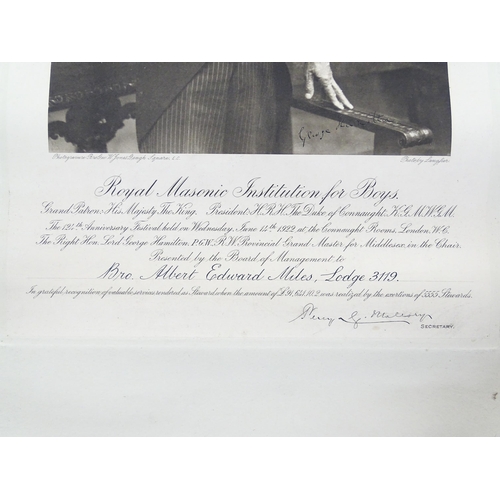 George
Royal Masonic Institution for Boys.
Grand Patron: His Majesty The King. President: H.R.H. The Duke of Connaught. K.G. M.W.G.M.
The 124th Anniversary Festival held on Wednesday, June 14th 1922 at the Connaught Rooms, London, W.C.
The Right Hon. Lord George Hamilton, P.G.W. R.W. Provincial Grand Master for Middlesex, in the Chair.
Presented by the Board of Management to
Bro. Albert Edward Miles, Lodge 3119.
In grateful recognition of valuable services rendered as Steward when the amount of was realized by the exertions of 5555 Stewards.
Percy G.
SECRETARY.